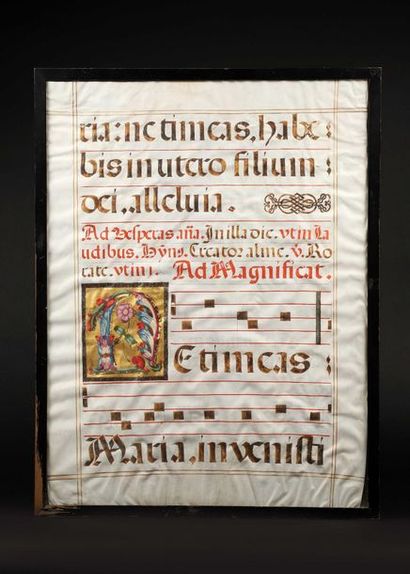 ria: ne timeas, habe
bis in utero filium
dei, alleluia.
Ad Vesperas. aña. In illa die. vt in La
udibus. Hyñ9. Creator alme. v. Ro
rate. vt in i. Ad Magnificat.
N
Etimeas
Maria, in venisti